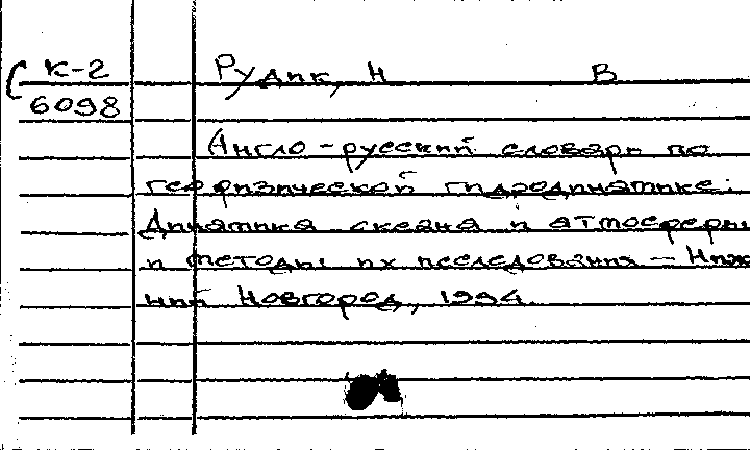 К-2 Рудик, Н В
6098
Англо-русский словарь по
геофизической гидродинамике:
Динамика океана и атмосферы
и методы их исследования — Ниж
ний Новгород, 1994